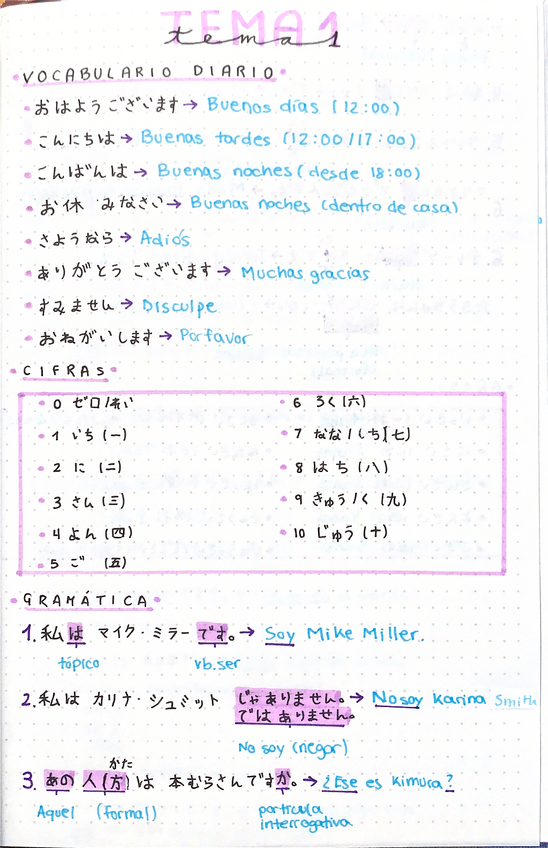 TEMA 1
tema 1
VOCABULARIO DIARIO
おはようございます→ Buenos días (12:00)
こんにちは→ Buenas tardes (12:00/17:00)
こんばんは→ Buenas noches (desde 18:00)
お休みなさい→ Buenas noches (dentro de casa)
さようなら→ Adiós
ありがとうございます→ Muchas gracias
すみません→ Disculpe
おねがいします→ Por favor
CIFRAS
0 ゼロ/れい
1 いち (一)
2 に (二)
3 さん (三)
4 よん (四)
5 ご (五)
6 ろく (六)
7 なな/しち (七)
8 はち (八)
9 きゅう/く (九)
10 じゅう (十)
GRAMÁTICA
1. 私は マイク・ミラーです。→ Soy Mike Miller.
tópico vb.ser
2. 私は カリナ・シュミット じゃありません。→ No soy Karina Smith
ではありません。
No soy (negar)
かた
3. あの人(方)は 本むらさんですか。→ ¿Ese es Kimura?
Aquel (formal) partícula
interrogativa